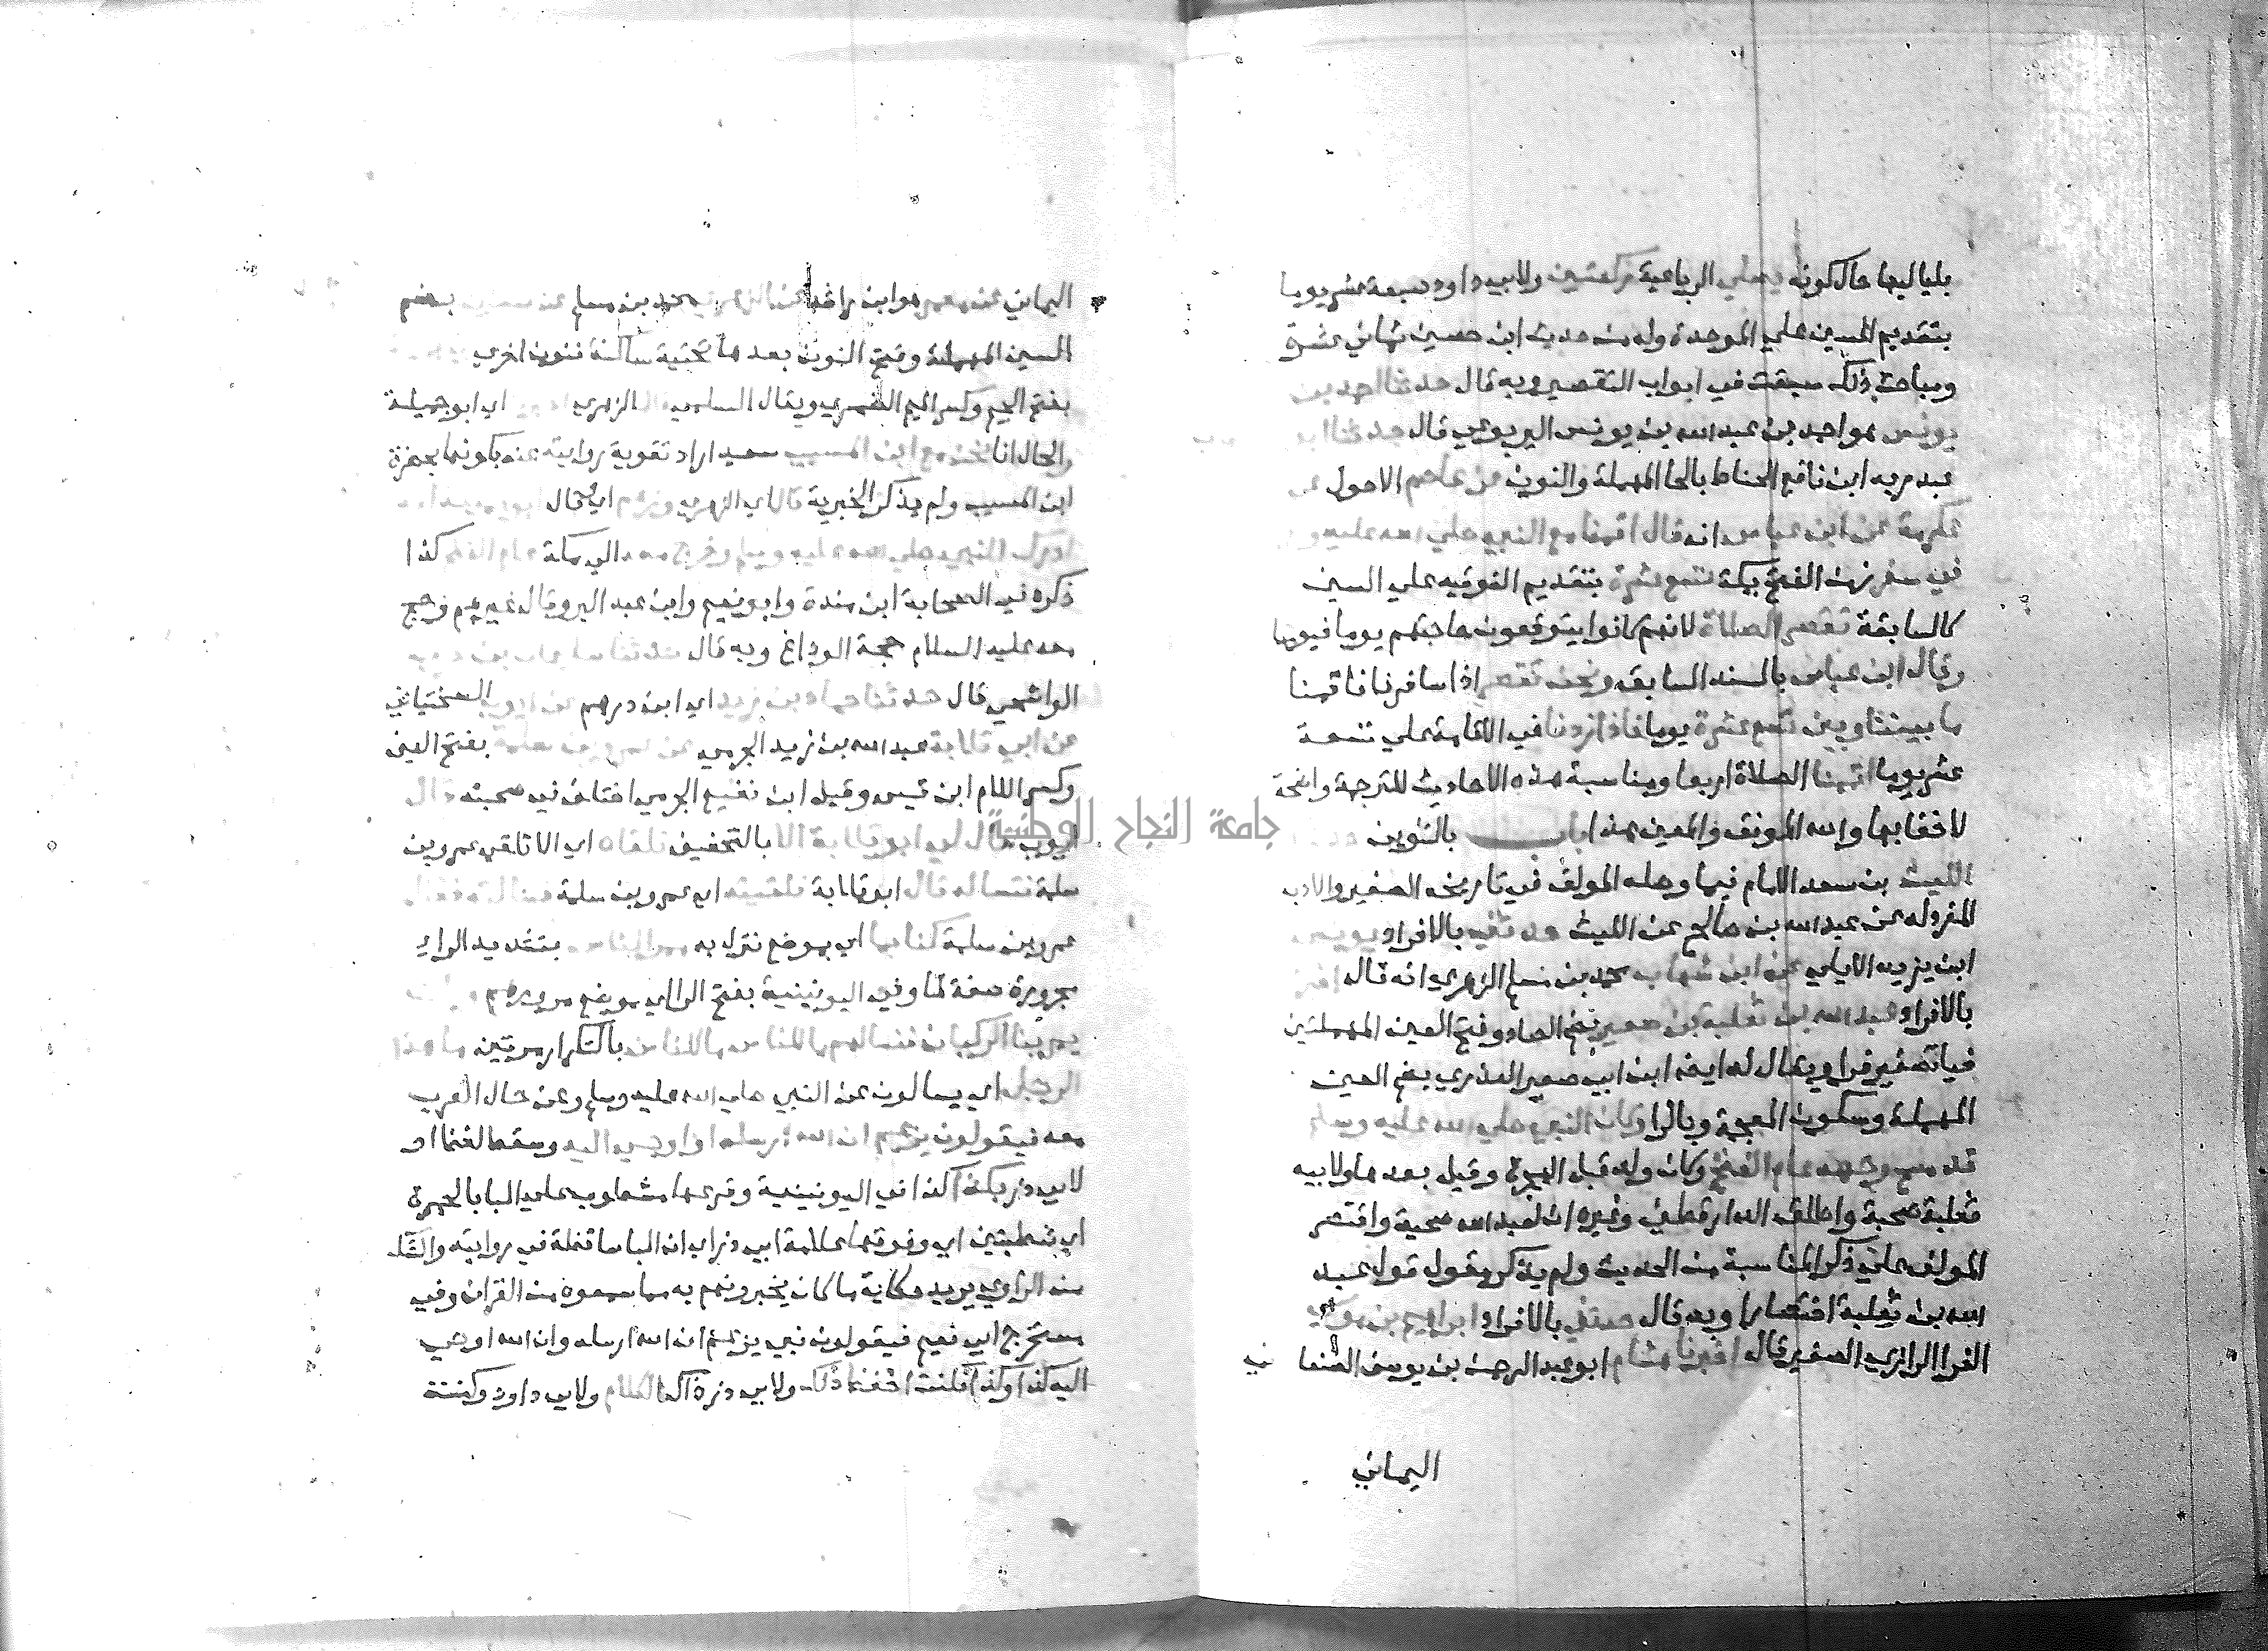 بلياليها حال كونه يصلي الرباعية ركعتين ولابي داود سبعة عشر يوما
بتقديم السين علي الموحدة وله من حديث ابن حصين ثماني عشرة
ومباحث ذلك سبقت في ابواب التقصير وبه قال حدثنا احمد بن
يونس هو احمد بن عبد الله بن يونس اليربوعي قال حدثنا ابو
عبد ربه ابن نافع الحناط بالحا المهملة والنون عن عاصم الاحول عن
عكرمة عن ابن عباس انه قال اقمنا مع النبي صلي الله عليه و
في سفر زمن الفتح بمكة تسع عشرة بتقديم الفوقيه علي السين
كالسابقة نقصر الصلاة لانهم كانوا يتوقعون حاجتهم يوما فيوما
وقال ابن عباس بالسند السابق ونحن نقصر اذا سافرنا فاقمنا
ما بيننا وبين تسع عشرة يوما فاذا زدنا في الاقامة علي تسعة
عشر يوما اتممنا الصلاة اربعا ومناسبة هذه الاحاديث للترجمة واضحة
لا خفا بها والله الموفق والمعين هذا باب بالتنوين
الليث بن سعد الامام فيما وصله المولف في تاريخه الصغير والادب
المفرد له عن عبد الله بن صالح عن الليث حدثني بالافراد يونس
ابن يزيد الايلي عن ابن شهاب محمد بن مسلم الزهري انه قال
بالافراد عبد الله بن ثعلبة بن صعير بضم الصاد وفتح العين المهملتين
فيا تصغير فرا ويقال له ايضا ابن ابي صعير العذري بضم العين
المهملة وسكون المعجمة وبالرا وكان النبي صلي الله عليه وسلم
قد مسح وجهه عام الفتح وكان ولد قبل الهجرة وقيل بعدها ولابيه
ثعلبة صحبة واطلق الدارقطني وغيره ان لعبد الله صحبة واقتصر
المولف علي ذكر المناسبة من الحديث ولم يذكر مقول قول عبد
الله بن ثعلبة اختصارا وبه قال حدثني بالافراد ابراهيم بن موسي
الفرا الرازي الصغير قال اخبرنا هشام ابو عبد الرحمن بن يوسف الصنعاني
اليماني
اليماني عن معمر هو ابن راشد عن الزهري محمد بن مسلم عن سنين بضم
السين المهملة وفتح النون بعدها تحتية ساكنة فنون اخري
بفتح الجيم وكسر الميم الضمري ويقال السلمي الزهري اي ابو جميلة
والحال انا نحن مع ابن المسيب سعيد اراد تقوية روايته عنه بكونها بحضرة
ابن المسيب ولم يذكر الخبرية قال اي الزهري وزعم اي قال ابو جميلة انه
ادرك النبي صلي الله عليه وسلم وخرج معه الي مكة عام الفتح كذا
ذكره في الصحابة ابن مندة وابو نعيم وابن عبد البر وقال غيرهم وحج
معه عليه السلام حجة الوداع وبه قال حدثنا سليمان بن حرب
الواشحي قال حدثنا حماد بن زيد اي ابن درهم عن ايوب السختياني
عن ابي قلابة عبد الله بن زيد الجرمي عن عمرو بن سلمة بفتح العين
وكسر اللام ابن قيس وقيل ابن نفيع الجرمي اختلف في صحبته قال
ايوب قال لي ابو قلابة الا بالتخفيف تلقاه اي الا تلقي عمرو بن
سلمة فتساله قال ابو قلابة فلقيته اي عمرو بن سلمة فسالته فقال
عمرو بن سلمة كنا بما اي بموضع ننزل به ممر الناس بتشديد الراء
مجرورة صفة لما وفي اليونينية بفتح الراي
يمر بنا الركبان فنسالهم ما للناس ما للناس بالتكرار مرتين ما هذا
الرجل اي يسالون عن النبي صلي الله عليه وسلم وعن حال العرب
معه فيقولون يزعم ان الله ارسله اوحي اليه وسقط لفظ او
لابي ذر بكذا كذا في اليونينية وفرعها مشطوب علي البا بالحمرة
اي شطبتين اي وفوقها علامة ابي ذر اي ان البا ساقطة في روايته والشك
من الراوي يريد حكاية ما كان يخبرونهم به مما سمعوه من القران وفي
مستخرج ابي نعيم فيقولون نبي يزعم ان الله ارسله وان الله اوحي
اليه كذا وكذا فكنت احفظ ذلك ولابي ذر ذاك الكلام ولابي داود وكنت
جامعة النجاح الوطنية